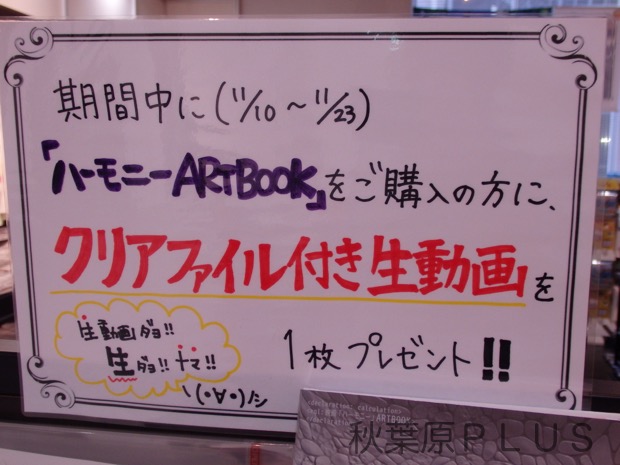 期間中に(11/10～11/23)
「ハーモニーARTBOOK」をご購入の方に、
クリアファイル付き生動画を
1枚プレゼント!!
生動画ダヨ!!
生ダヨ!!ナマ!!
\(・∀・)ﾉｼ
<declaration: calculation>
ARTBOOK
秋葉原PLUS